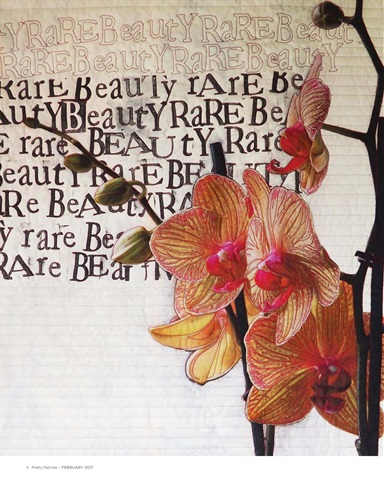 tY RaRE BeautY RARE Beauty
tY RaRE BeautY RARE BeautY
RarE Beauty rArE Be
AutY BeautY RaRE Be
E rare BEAUTY Rare
Beauty RareBEAUTY
aRe BeAutY RA
y rare Bea
RAre BEau
4 Pretty Patches • FEBRUARY 2017